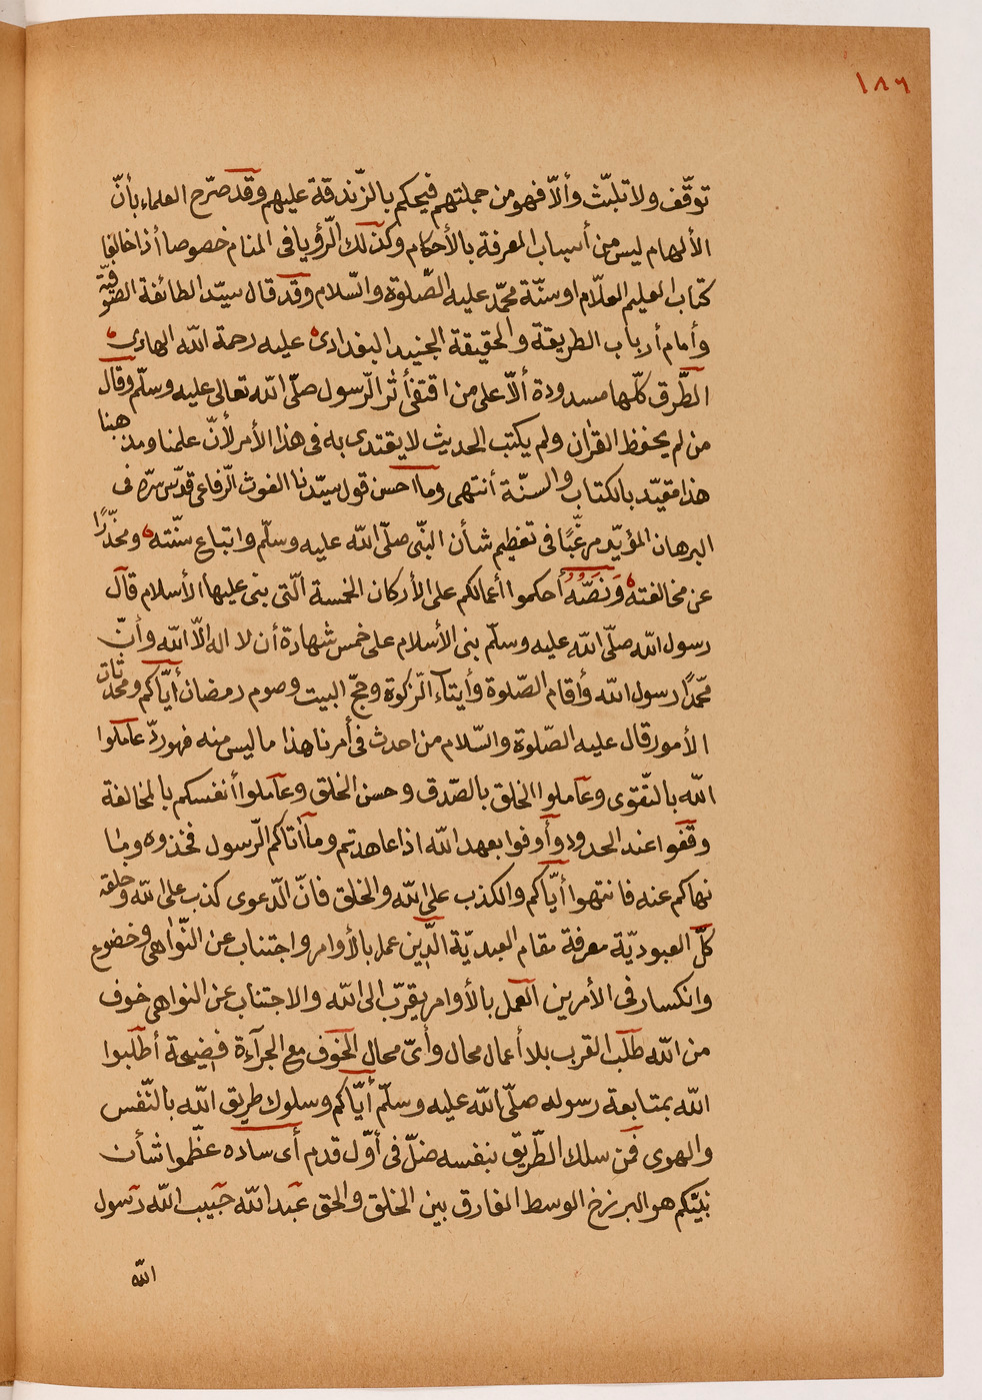 ١٨٦
توقّف ولا تلبّث وألّا فهو من جملتهم فيحكم بالزّندقة عليهم وقد صرّح العلماء بأنّ
الألهام ليس من أسباب المعرفة بالأحكام وكذلك الرّؤيا فى المنام خصوصا أذا خالفا
كتاب العليم العلّام او سنّة محمّد عليه الصّلوة والسّلام وقد قال سيّد الطائفة الصّوفيّة
وأمام أرباب الطريقة والحقيقة الجنيد البغدادى عليه رحمة الله الهادى
الطّرق كلّها مسدودة ألّا على من اقتفى أثر الرّسول صلّى الله تعالى عليه وسلّم وقال
من لم يحفظ القرٰان ولم يكتب الحديث لا يقتدى به فى هذا الأمر لأنّ علمنا ومذهبنا
هذا مقيّد بالكتاب والسنّة أنتهى وما احسن قول سيّدنا الغوث الرّفاعى قدّس سرّه فى
البرهان المؤيّد مرغّبًا فى تعظيم شأن النبّى صلّى الله عليه وسلّم واتباع سنّته ومحذّرًا
عن مخالفته وَنَصّهُ أحكموا أعمالكم على الأركان الخمسة الّتى بنى عليها الأسلام قال
رسول الله صلّى الله عليه وسلّم بنى الأسلام على خمس شهادة أن لا اله الّا الله وأنّ
محمّدًا رسول الله وأقام الصّلوة وأيتآء الزّكوة وحجّ البيت وصوم رمضان أيّاكم ومحدثات
الأمور قال عليه الصّلوة والسّلام من احدث فى أمرنا هذا ما ليس منه فهو ردّ عاملوا
الله بالتّقوى وعاملوا الخلق بالصّدق وحسن الخلق وعاملوا أنفسكم بالمخالفة
وقفوا عند الحدود وأوفوا بعهد الله اذا عاهدتم وما أتاكم الرّسول فخذوه وما
نهاكم عنه فانتهوا أيّاكم والكذب على الله والخلق فانّ الدّعوى كذب على الله وخلقه
كلّ العبوديّة معرفة مقام العبديّة الدّين عمل بالأوامر واجتناب عن النّواهى وخضوع
وانكسار فى الأمرين العمل بالأوامر يقرّب الى الله والاجتناب عن النواهى خوف
من الله طلب القرب بلا أعمال محال وأىّ محال الخوف مع الجرآءة فضيحة أطلبوا
الله بمتابعة رسوله صلّى الله عليه وسلّم أيّاكم وسلوك طريق الله بالنّفس
والهوى فمن سلك الطّريق بنفسه ضلّ فى أوّل قدم أى ساده عظّموا شأن
نبيّكم هو البرزخ الوسط الفارق بين الخلق والحق عبد الله حبيب الله رسول
الله